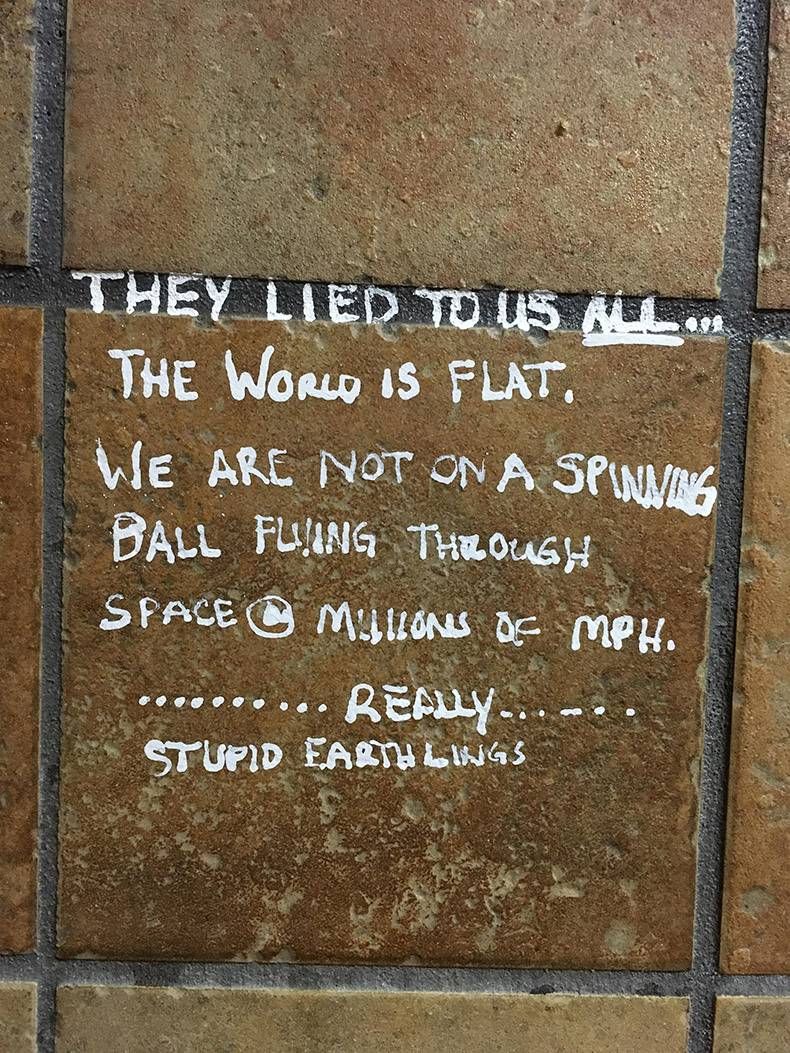 THEY LIED TO US ALL...
THE WORLD IS FLAT.
WE ARE NOT ON A SPINNING
BALL FLYING THROUGH
SPACE @ MILLIONS OF MPH.
........... REALLY.......
STUPID EARTHLINGS